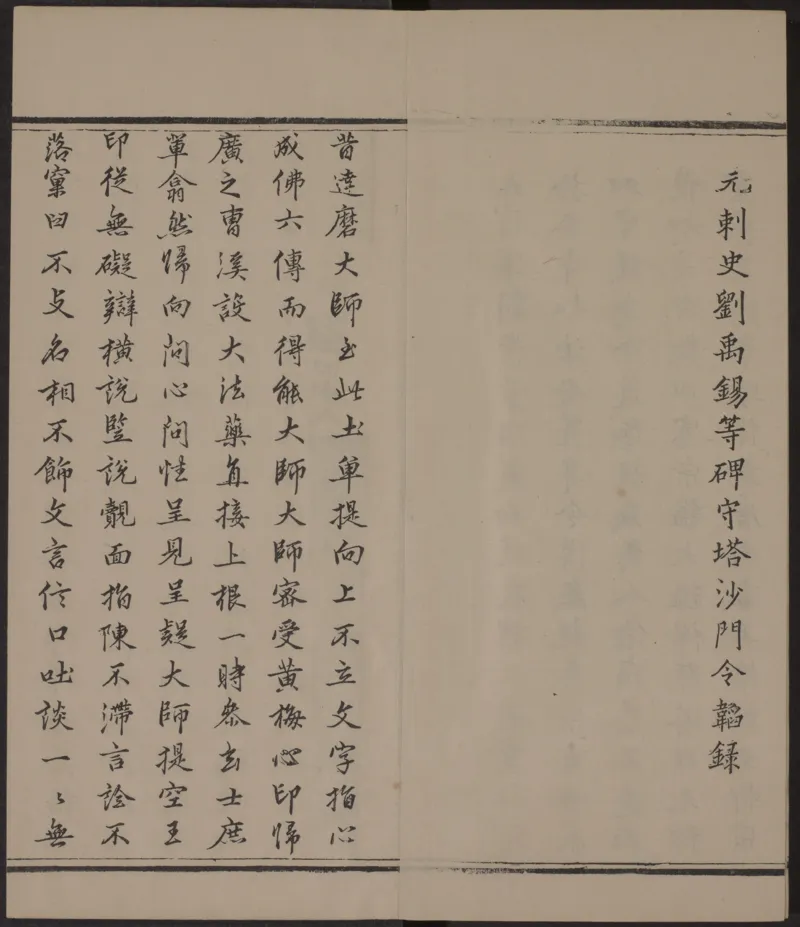 元刺史劉禹錫等碑守塔沙門令韜録
昔達磨大師至此土單提向上不立文字指心
成佛六傳而得能大師大師密受黃梅心印歸
廣之曹溪設大法藥直接上根一時叅玄士庶
單翕然歸向問心問性呈見呈疑大師提空王
印從無礙辯橫說豎說覿面指陳不滯言詮不
落窠臼不攴名相不飾文言信口吐談一〻無